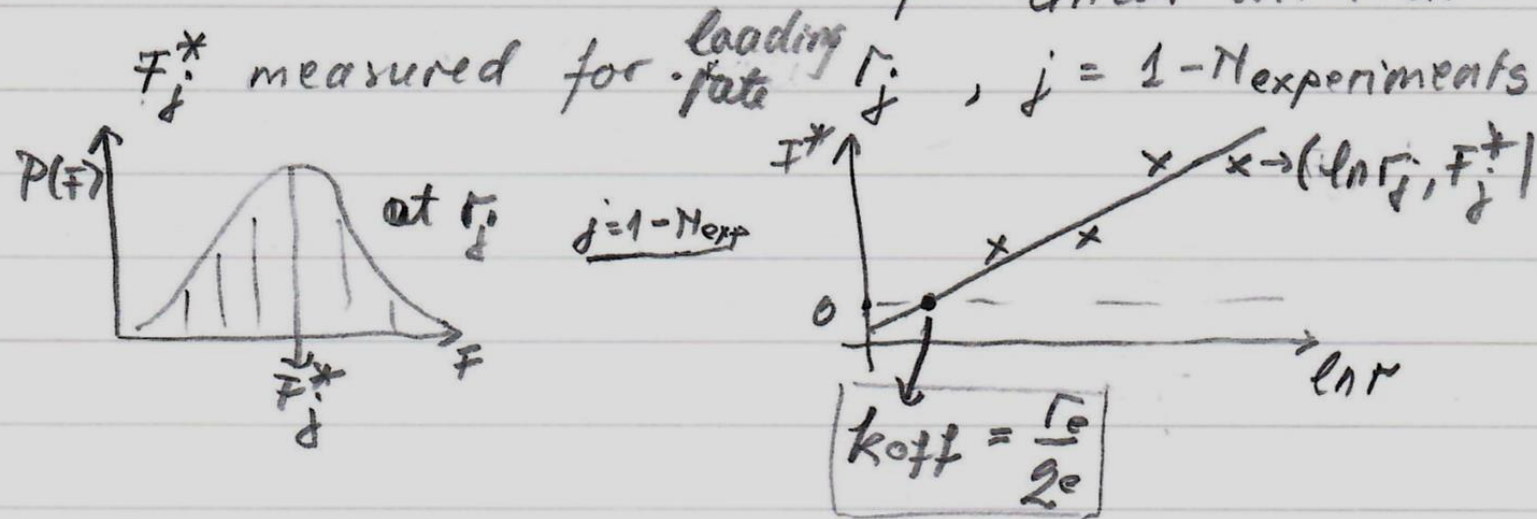 F_j^* measured for loading rate r_j , j = 1 - N experiments
P(F)
at r_j
F_j^*
F
j = 1 - N exp
F^*
x → (ln r_j, F_j^*)
0
ln r
k off = r_e / 2e